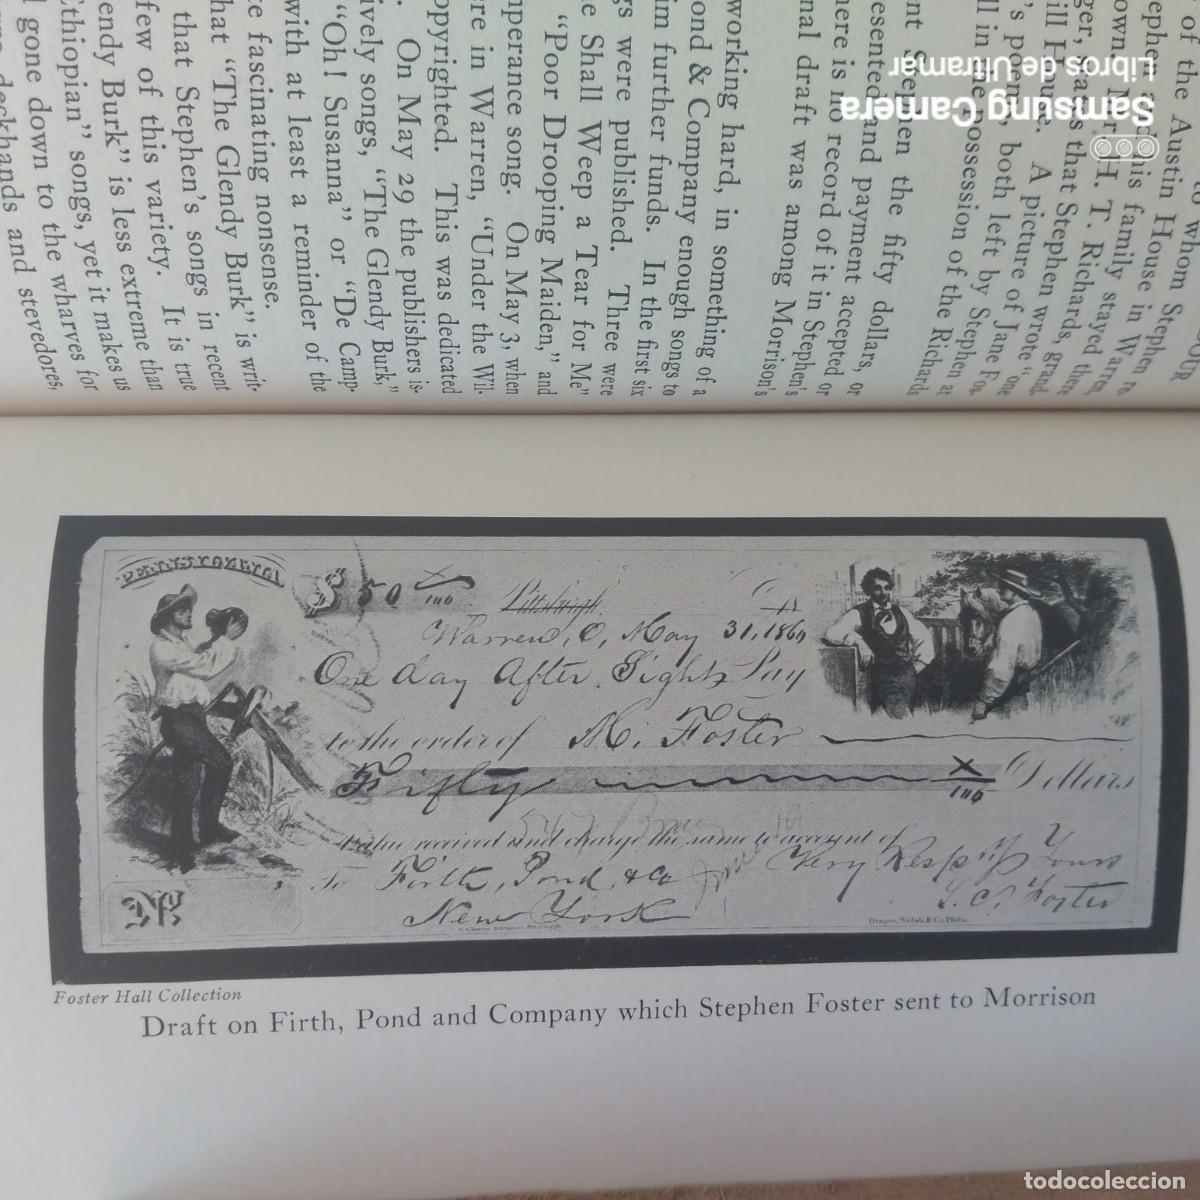 OUR
to whom Stephen
of the Austin House in Warren,
Stephen and his family stayed
own. Mr. H. T. Richards, grand
ger, says that Stephen, there
ill House. A picture wrote "one
's poems, both left by Stephen at
ll in the possession of the Richards
ent Stephen the fifty dollars, or
esented and payment accepted or
here is no record of it in Stephen's
nal draft was among Morrison's
working hard, in something of a
ond & Company enough songs to
im further funds. In the first six
gs were published. Three were
e Shall Weep a Tear for Me"
"Poor Drooping Maiden," and
mperance song. On May 3, when
ere in Warren, "Under the Wil-
opyrighted. This was dedicated
. On May 29 the publishers is-
ively songs, "The Glendy Burk,"
"Oh! Susanna" or "De Camp-
with at least a reminder of the
re fascinating nonsense.
hat "The Glendy Burk" is writ-
that Stephen's songs in recent
few of this variety. It is true
endy Burk" is less extreme than
Ethiopian" songs, yet it makes us
l gone down to the wharves for
deckhands and stevedores,
Samsung Camera
Libros de Ultramar
PENNSYLVANIA
$ 50 x/100 Pittsburgh,
Warren, O, May 31, 1860
One day After Sight Pay
to the order of M. Foster
Fifty x/100 Dollars
Value received and charge the same to account of
To Firth, Pond, & Co Very Resp'y Yours
New York S. C. Foster
No.
Draper, Welsh & Co. Phila.
Foster Hall Collection
Draft on Firth, Pond and Company which Stephen Foster sent to Morrison
todocoleccion